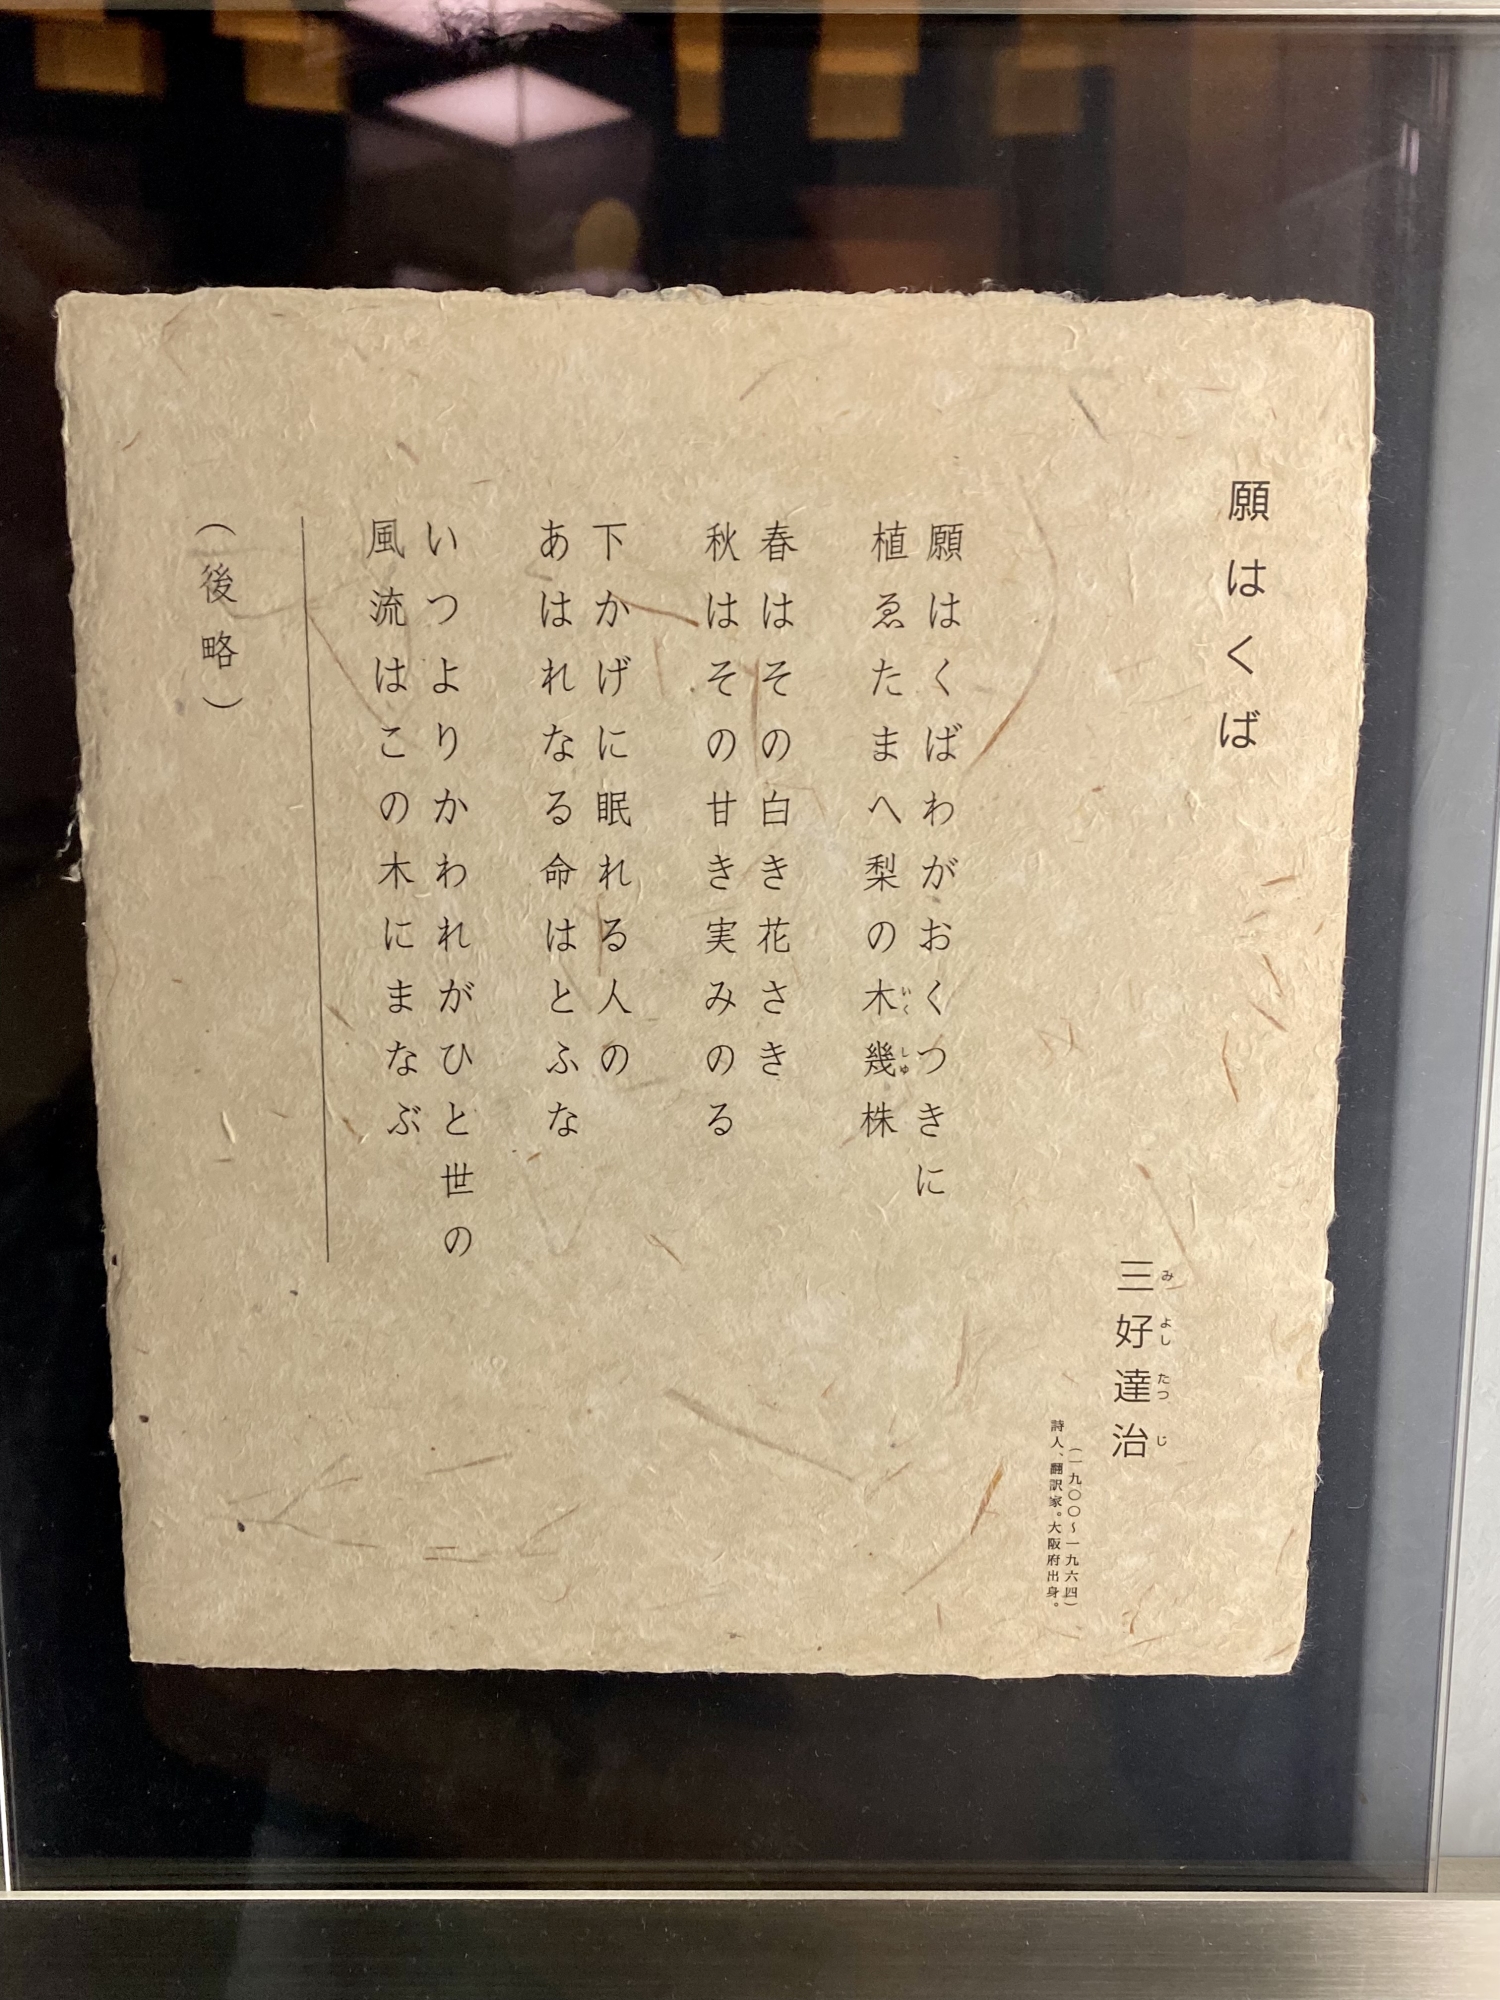 願はくば
三好達治
みよしたつじ
(一九〇〇〜一九六四)
詩人、翻訳家。大阪府出身。
願はくばわがおくつきに
植ゑたまへ梨の木幾株
いくしゆ
春はその白き花さき
秋はその甘き実みのる
下かげに眠れる人の
あはれなる命はとふな
いつよりかわれがひと世の
風流はこの木にまなぶ
(後略)